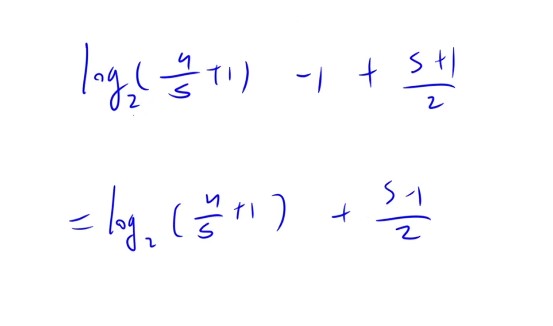 log₂(4/5 + 1) - 1 + (5+1)/2
= log₂(4/5 + 1) + (5-1)/2